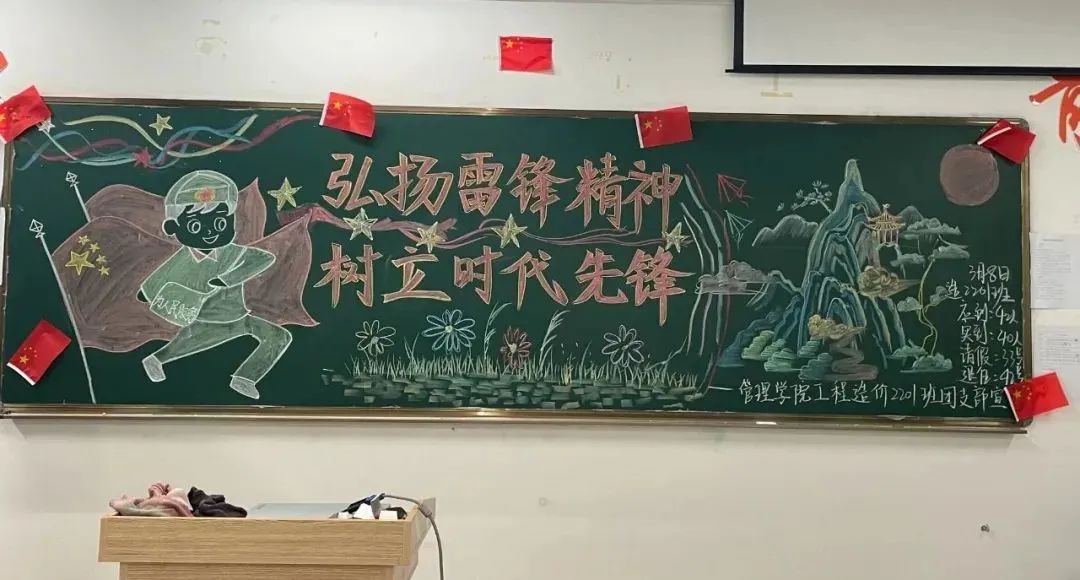 弘扬雷锋精神
树立时代先锋
为人民服务
3月8日
造2201班
应到:
实到:
请假:
管理学院工程造价2201班团支部宣